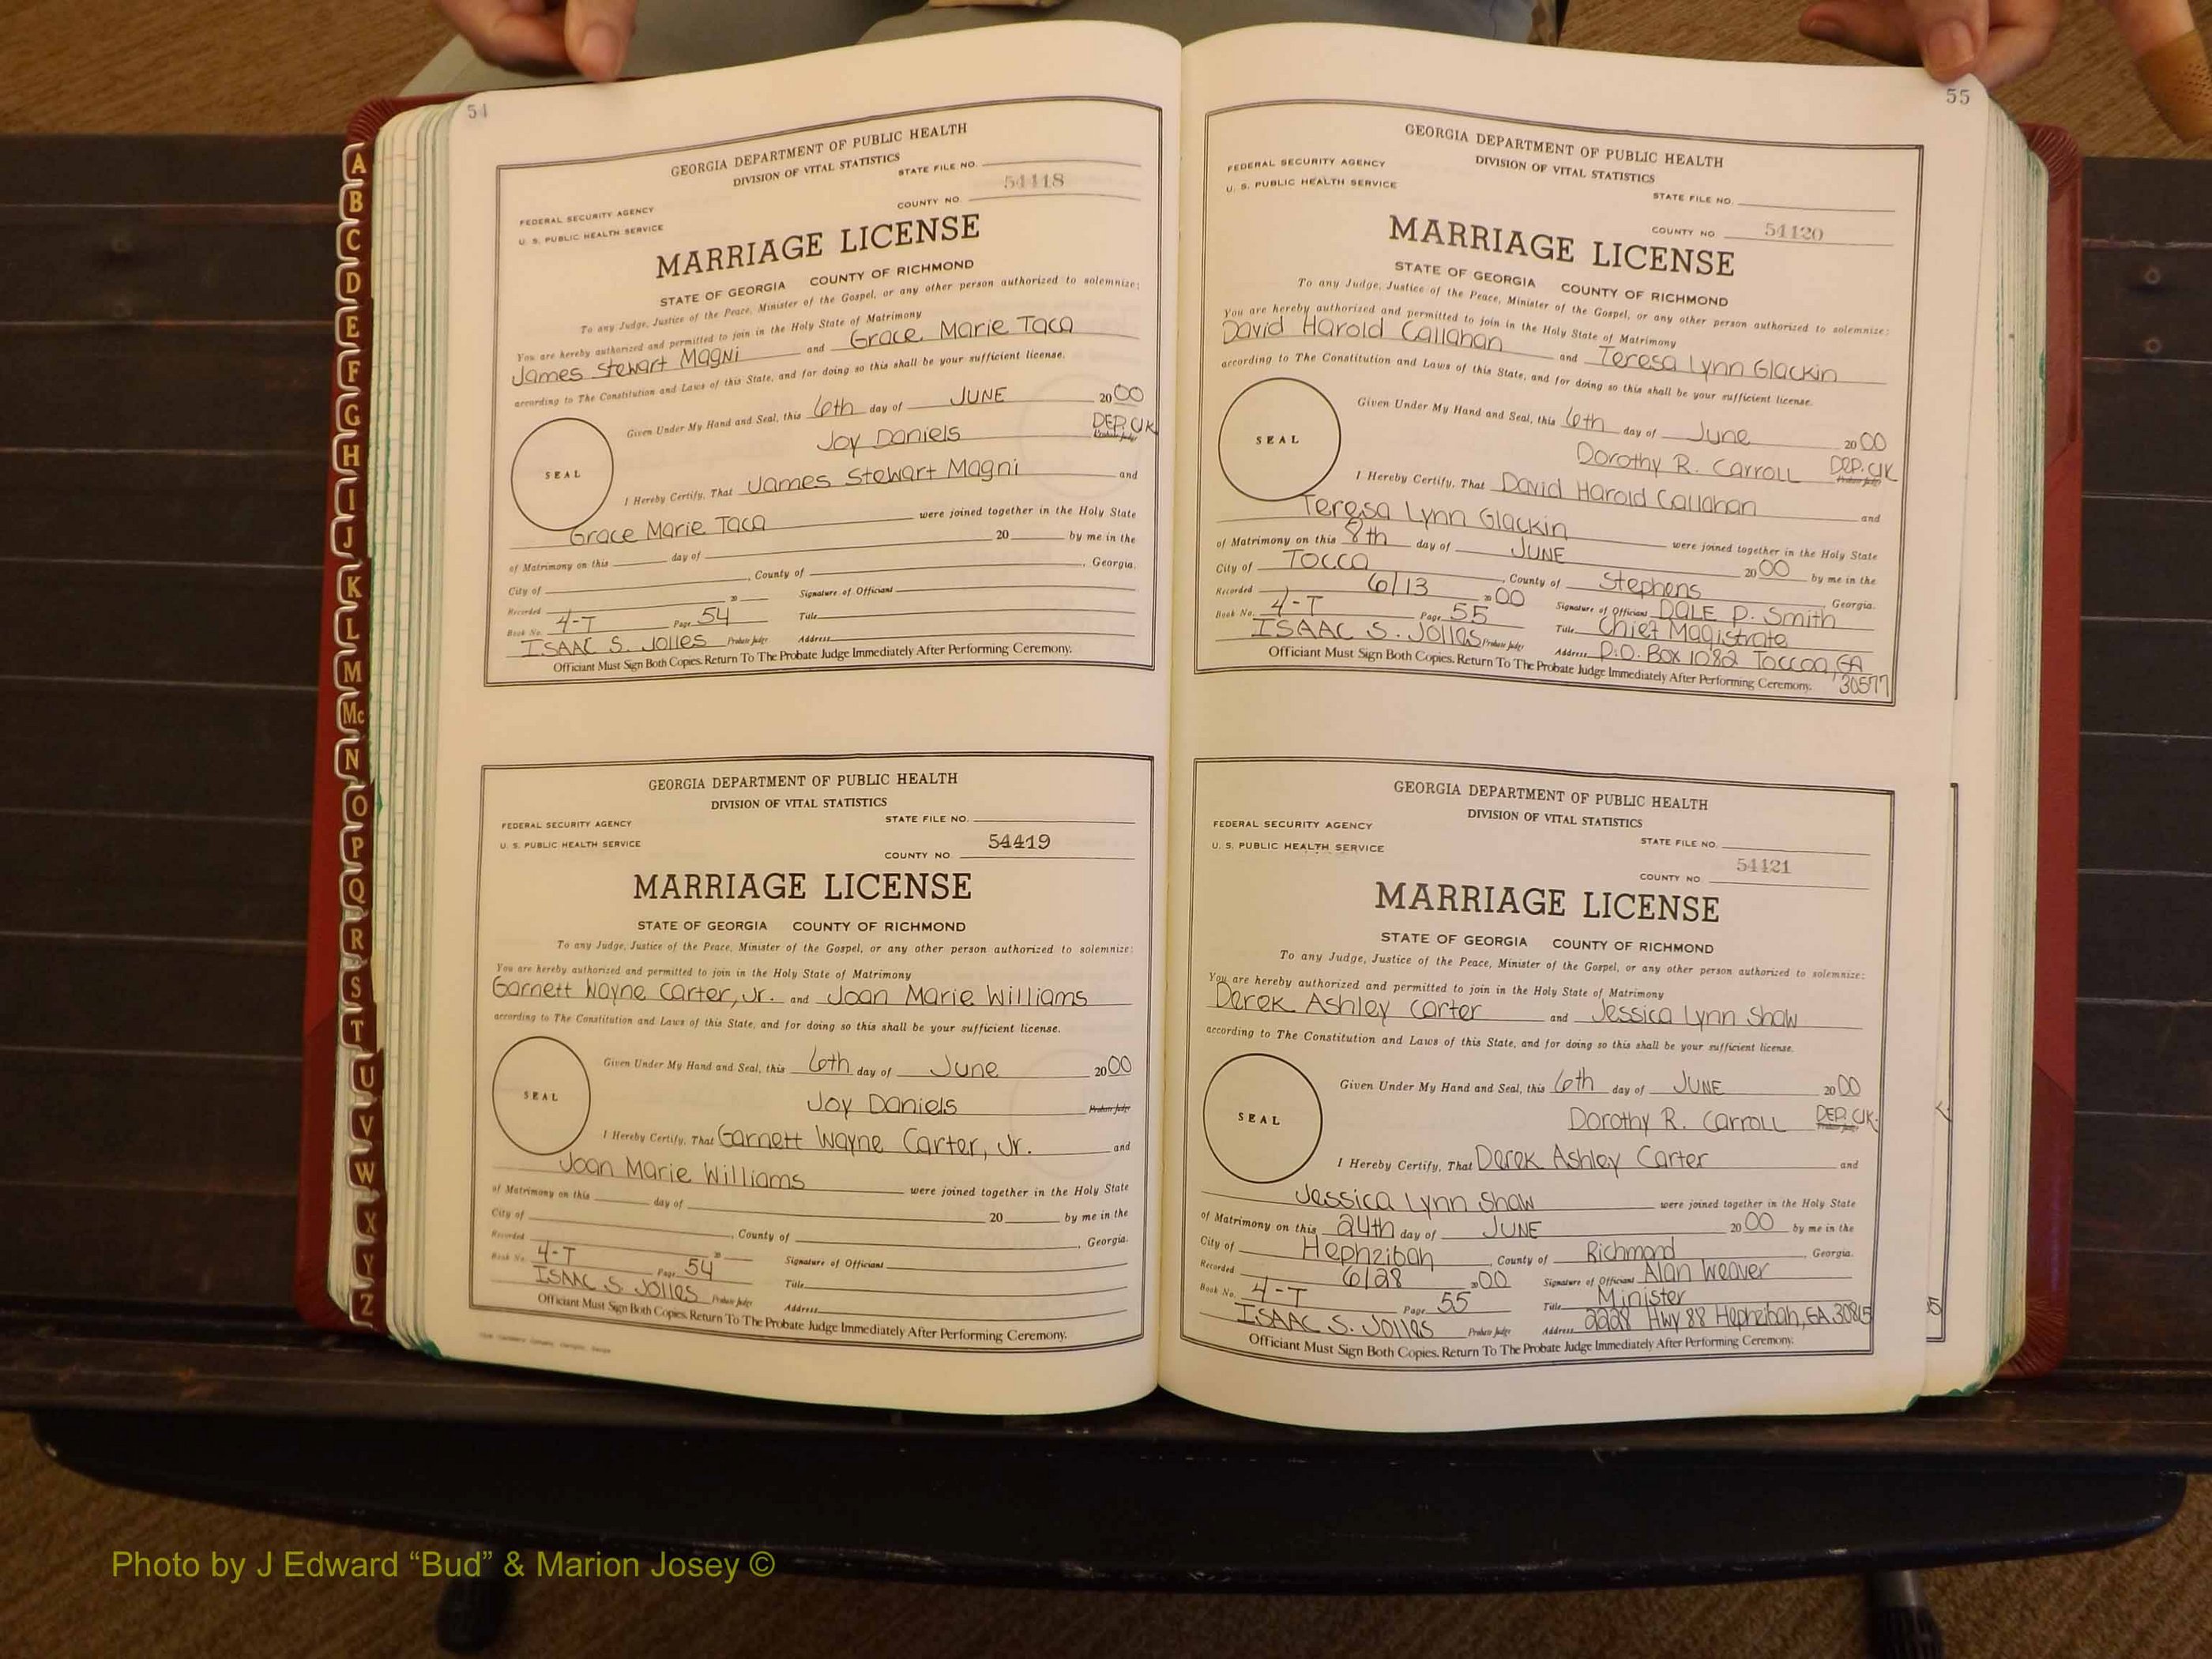 A
B
C
D
E
F
G
H
I
J
K
L
M
Mc
N
O
P
Q
R
S
T
U
V
W
X
Y
Z
54
GEORGIA DEPARTMENT OF PUBLIC HEALTH
DIVISION OF VITAL STATISTICS
STATE FILE NO.
54418
FEDERAL SECURITY AGENCY
COUNTY NO.
U. S. PUBLIC HEALTH SERVICE
MARRIAGE LICENSE
STATE OF GEORGIA COUNTY OF RICHMOND
To any Judge, Justice of the Peace, Minister of the Gospel, or any other person authorized to solemnize:
You are hereby authorized and permitted to join in the Holy State of Matrimony
James Stewart Magni and Grace Marie Taca
according to The Constitution and Laws of this State, and for doing so this shall be your sufficient license.
Given Under My Hand and Seal, this 6th day of JUNE 2000
Joy Daniels DEP. Clk
Probate Judge
SEAL
I Hereby Certify, That James Stewart Magni and
Grace Marie Taca were joined together in the Holy State
of Matrimony on this day of 20 by me in the
City of , County of , Georgia.
Recorded 20 Signature of Officiant
Book No. 4-T Page 54 Title
ISAAC S. Jolles Probate Judge Address
Officiant Must Sign Both Copies. Return To The Probate Judge Immediately After Performing Ceremony.
GEORGIA DEPARTMENT OF PUBLIC HEALTH
DIVISION OF VITAL STATISTICS
FEDERAL SECURITY AGENCY STATE FILE NO.
54419
U. S. PUBLIC HEALTH SERVICE COUNTY NO.
MARRIAGE LICENSE
STATE OF GEORGIA COUNTY OF RICHMOND
To any Judge, Justice of the Peace, Minister of the Gospel, or any other person authorized to solemnize:
You are hereby authorized and permitted to join in the Holy State of Matrimony
Garnett Wayne Carter, Jr. and Joan Marie Williams
according to The Constitution and Laws of this State, and for doing so this shall be your sufficient license.
Given Under My Hand and Seal, this 6th day of June 2000
Joy Daniels Probate Judge
SEAL
I Hereby Certify, That Garnett Wayne Carter, Jr. and
Joan Marie Williams were joined together in the Holy State
of Matrimony on this day of 20 by me in the
City of , County of , Georgia.
Recorded 20 Signature of Officiant
Book No. 4-T Page 54 Title
ISAAC S. Jolles Probate Judge Address
Officiant Must Sign Both Copies. Return To The Probate Judge Immediately After Performing Ceremony.
55
GEORGIA DEPARTMENT OF PUBLIC HEALTH
DIVISION OF VITAL STATISTICS
FEDERAL SECURITY AGENCY
U. S. PUBLIC HEALTH SERVICE
STATE FILE NO.
COUNTY NO. 54420
MARRIAGE LICENSE
STATE OF GEORGIA COUNTY OF RICHMOND
To any Judge, Justice of the Peace, Minister of the Gospel, or any other person authorized to solemnize:
You are hereby authorized and permitted to join in the Holy State of Matrimony
David Harold Callahan and Teresa Lynn Glackin
according to The Constitution and Laws of this State, and for doing so this shall be your sufficient license.
Given Under My Hand and Seal, this 6th day of June 2000
Dorothy R. Carroll Dep. Clk
Probate Judge
SEAL
I Hereby Certify, That David Harold Callahan and
Teresa Lynn Glackin were joined together in the Holy State
of Matrimony on this 8th day of JUNE 2000 by me in the
City of Tocca , County of Stephens , Georgia.
Recorded 6/13 2000 Signature of Officiant DALE P. Smith
Book No. 4-T Page 55 Title Chief Magistrate
ISAAC S. Jolles Probate Judge Address P.O. Box 1082 Toccoa, GA
30577
Officiant Must Sign Both Copies. Return To The Probate Judge Immediately After Performing Ceremony.
GEORGIA DEPARTMENT OF PUBLIC HEALTH
DIVISION OF VITAL STATISTICS
FEDERAL SECURITY AGENCY
U. S. PUBLIC HEALTH SERVICE
STATE FILE NO.
54421
COUNTY NO.
MARRIAGE LICENSE
STATE OF GEORGIA COUNTY OF RICHMOND
To any Judge, Justice of the Peace, Minister of the Gospel, or any other person authorized to solemnize:
You are hereby authorized and permitted to join in the Holy State of Matrimony
Derek Ashley Carter and Jessica Lynn Shaw
according to The Constitution and Laws of this State, and for doing so this shall be your sufficient license.
Given Under My Hand and Seal, this 6th day of JUNE 2000
Dorothy R. Carroll DEP. Clk.
Probate Judge
SEAL
I Hereby Certify, That Derek Ashley Carter and
Jessica Lynn Shaw were joined together in the Holy State
of Matrimony on this 24th day of JUNE 2000 by me in the
City of Hephzibah , County of Richmond , Georgia.
Recorded 6/28 2000 Signature of Officiant Alan Weaver
Book No. 4-T Page 55 Title Minister
ISAAC S. Jolles Probate Judge Address 2228 Hwy 88 Hephzibah, GA 30815
Officiant Must Sign Both Copies. Return To The Probate Judge Immediately After Performing Ceremony.
Photo by J Edward “Bud” & Marion Josey ©